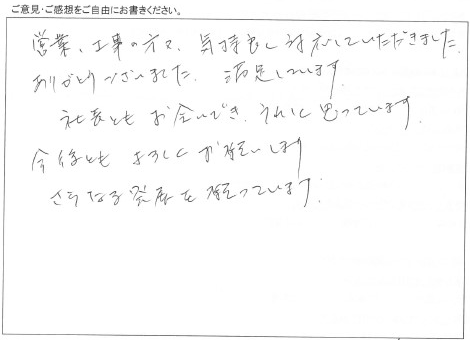 ご意見・ご感想をご自由にお書きください。
営業、工事の方々、気持良し対応していただきました。
ありがとうございました。満足しています。
社長ともお会いでき、うれしく思っています。
今後ともよろしくお願いします
さらなる発展を願っています。